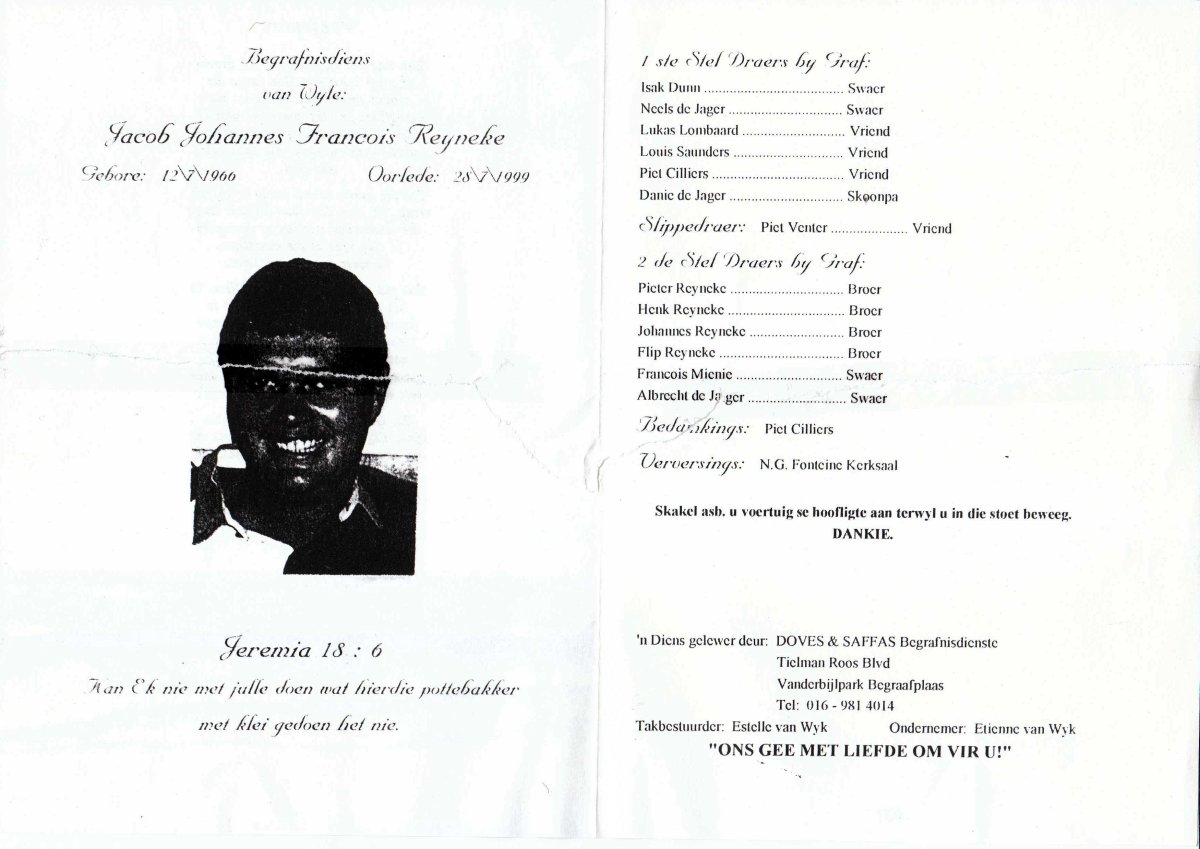 Begrafnisdiens
van Wyle:
Jacob Johannes Francois Reyneke
Gebore: 12\7\1966 Oorlede: 28\7\1999
Jeremia 18 : 6
Kan Ek nie met julle doen wat hierdie pottebakker
met klei gedoen het nie.
1 ste Stel Draers by Graf:
Isak Dunn ...................................... Swaer
Neels de Jager ............................... Swaer
Lukas Lombaard ............................ Vriend
Louis Saunders .............................. Vriend
Piet Cilliers .................................... Vriend
Danie de Jager ............................... Skoonpa
Slippedraer: Piet Venter ..................... Vriend
2 de Stel Draers by Graf:
Pieter Reyneke ............................... Broer
Henk Reyneke ................................ Broer
Johannes Reyneke .......................... Broer
Flip Reyneke .................................. Broer
Francois Mienie ............................. Swaer
Albrecht de Jager ........................... Swaer
Bedankings: Piet Cilliers
Verversings: N.G. Fonteine Kerksaal
Skakel asb. u voertuig se hoofligte aan terwyl u in die stoet beweeg.
DANKIE.
'n Diens gelewer deur: DOVES & SAFFAS Begrafnisdienste
Tielman Roos Blvd
Vanderbijlpark Begraafplaas
Tel: 016 - 981 4014
Takbestuurder: Estelle van Wyk Ondernemer: Etienne van Wyk
"ONS GEE MET LIEFDE OM VIR U!"